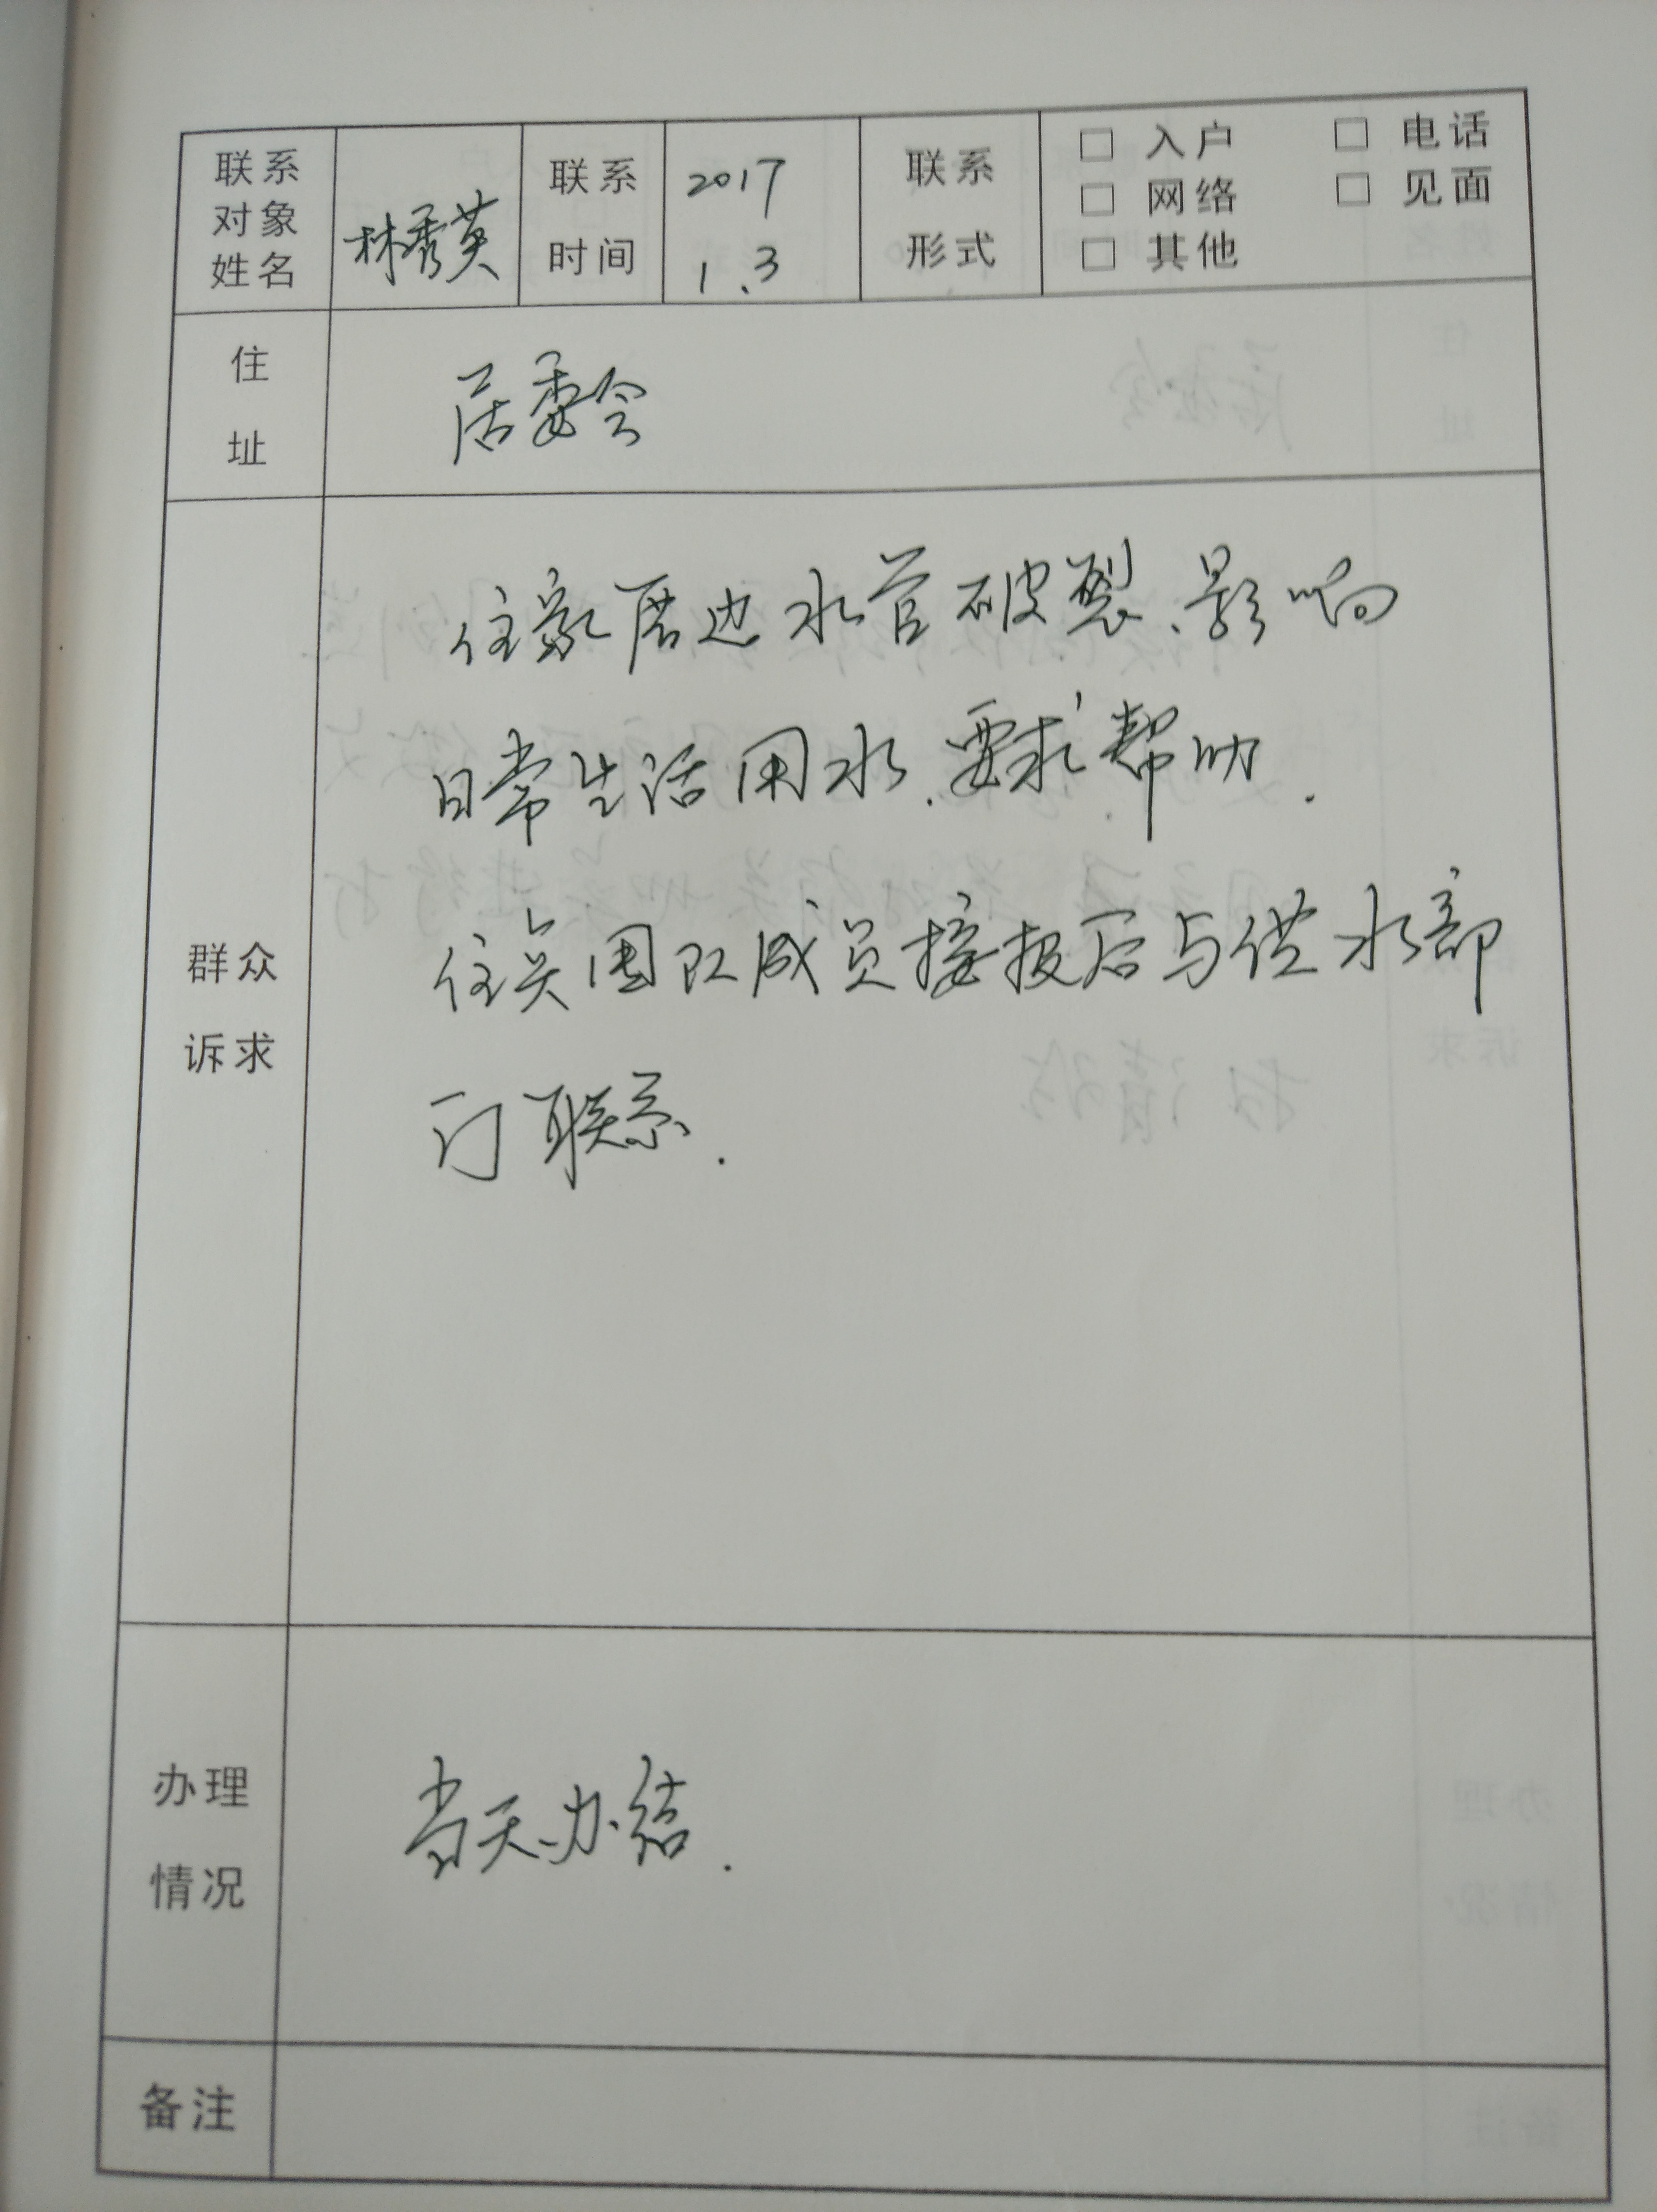 联系对象姓名 林秀英 联系时间 2017 1.3 联系形式 □ 入户 □ 电话 □ 网络 □ 见面 □ 其他
住址 居委会
群众诉求
住家居边水管破裂、影响
日常生活用水.要求帮助.
住点团队成员接报后与供水部
门联系.
办理情况 当天办结.
备注